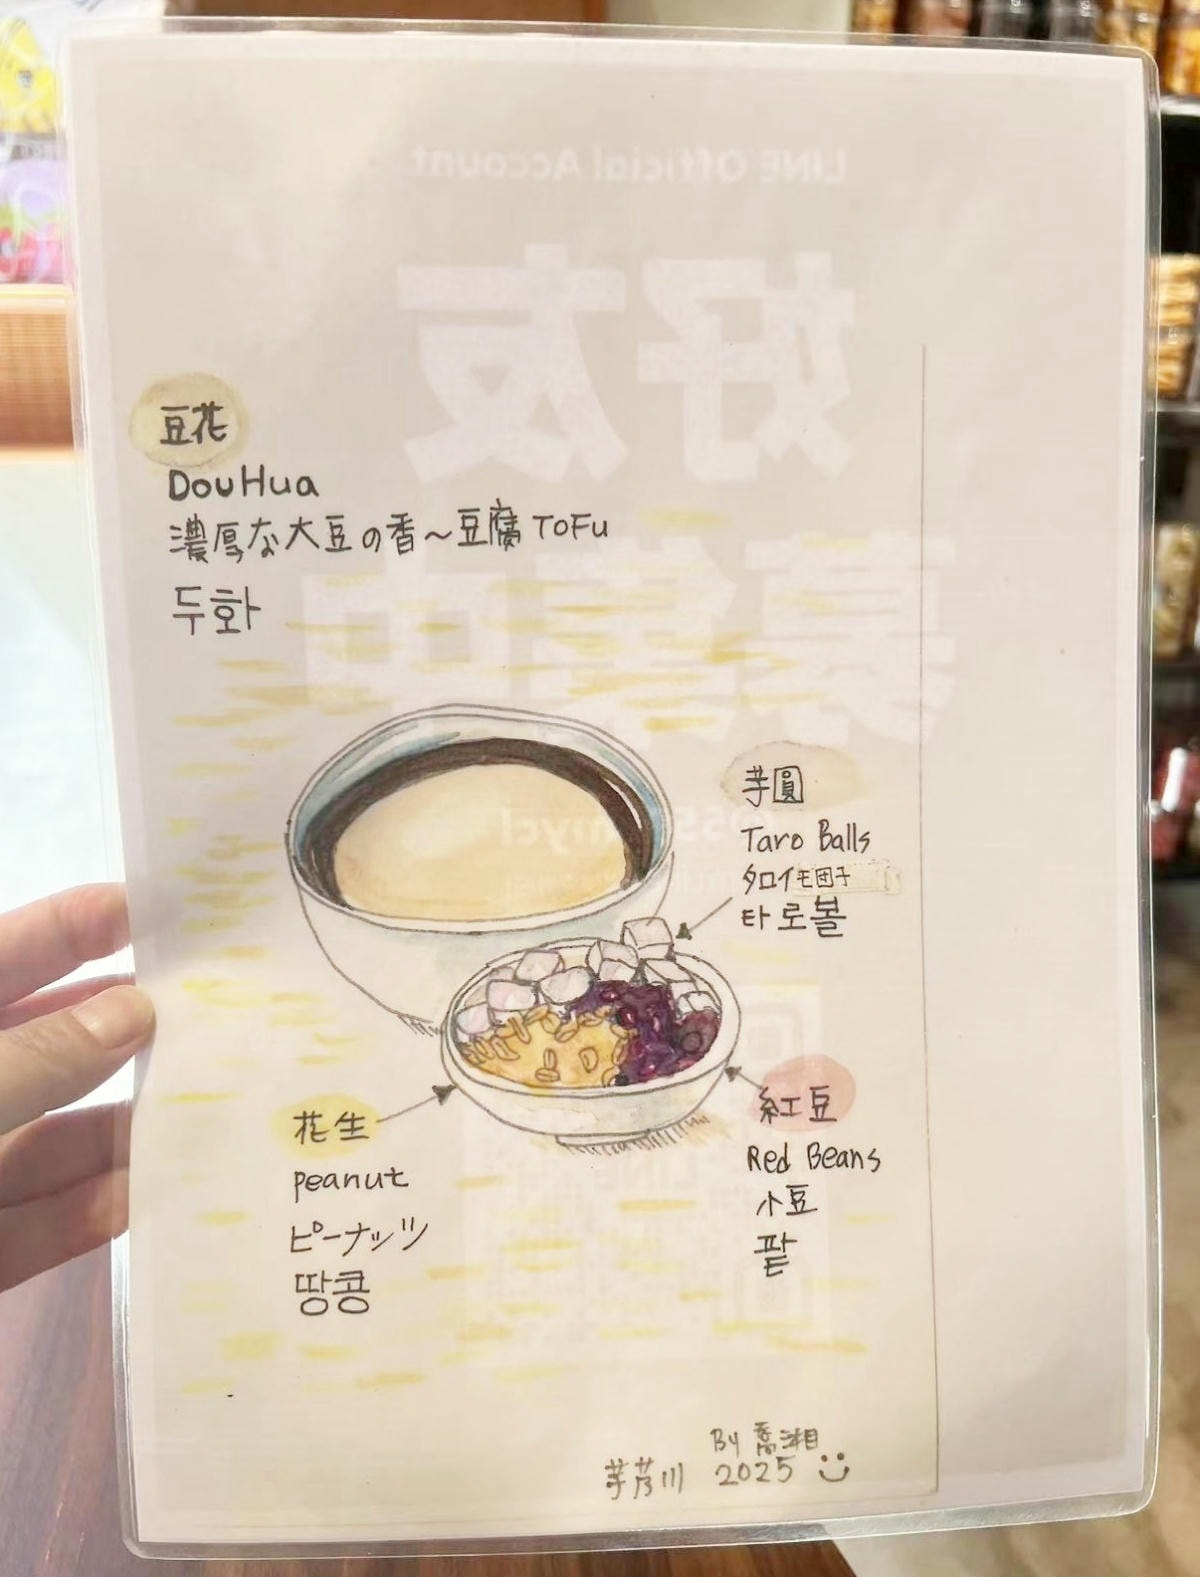 豆花
DouHua
濃厚な大豆の香～豆腐 TOFu
두화
芋圓
Taro Balls
タロイモ団子
타로볼
花生
peanut
ピーナッツ
땅콩
紅豆
Red Beans
小豆
팥
By 喬湘
2025
LINE Official Account
好友
募集中